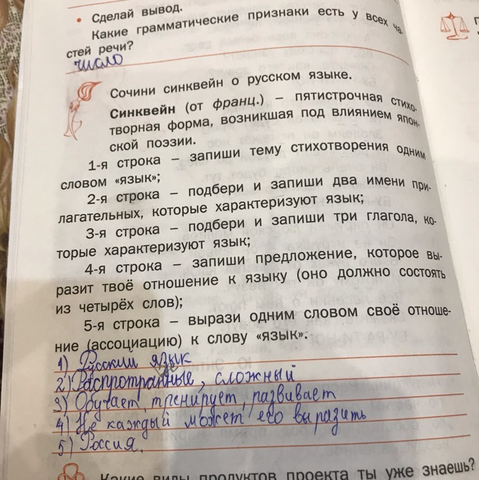 • Сделай вывод.
Какие грамматические признаки есть у всех ча
стей речи?
число
Сочини синквейн о русском языке.
Синквейн (от франц.) – пятистрочная стихо-
творная форма, возникшая под влиянием япон-
ской поэзии.
1-я строка – запиши тему стихотворения одним
словом «язык»;
2-я строка – подбери и запиши два имени при-
лагательных, которые характеризуют язык;
3-я строка – подбери и запиши три глагола, ко-
торые характеризуют язык;
4-я строка – запиши предложение, которое вы-
разит твоё отношение к языку (оно должно состоять
из четырёх слов);
5-я строка – вырази одним словом своё отноше-
ние (ассоциацию) к слову «язык».
1) Русский язык
2) сложный
3) Обучает, тренирует, развивает
4) Не каждый может его выразить
5) Россия.
Какие виды продуктов проекта ты уже знаешь?